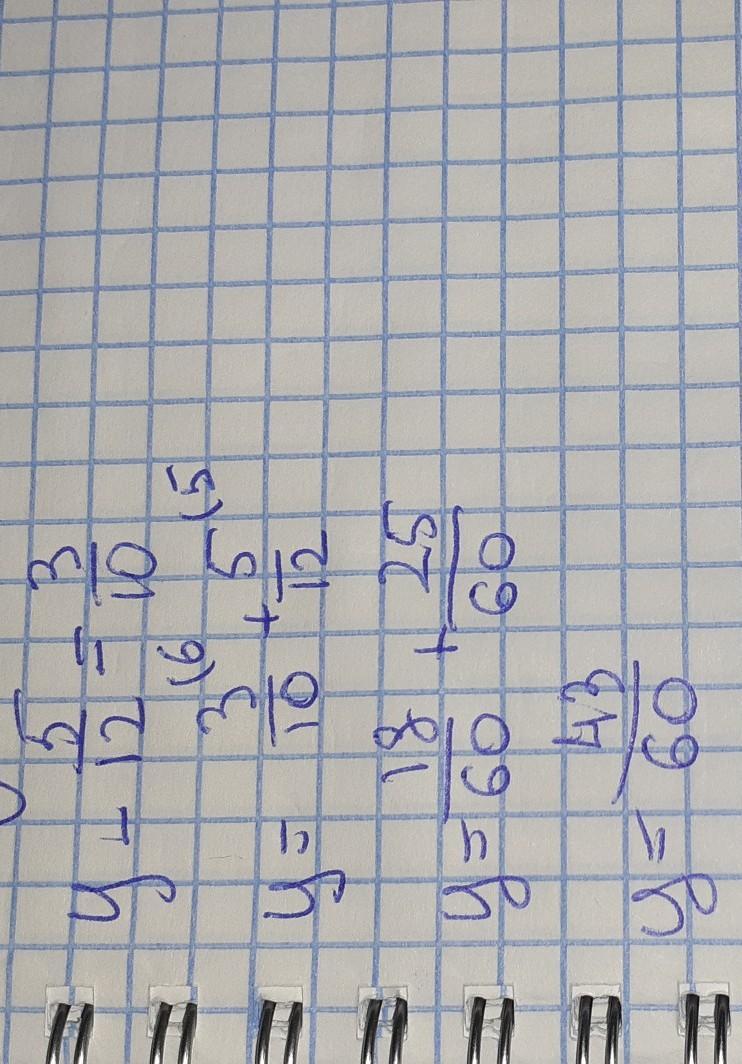 y - 5/12 = 3/10
y = 3/10 (6 + 5/12 (5
y = 18/60 + 25/60
y = 43/60